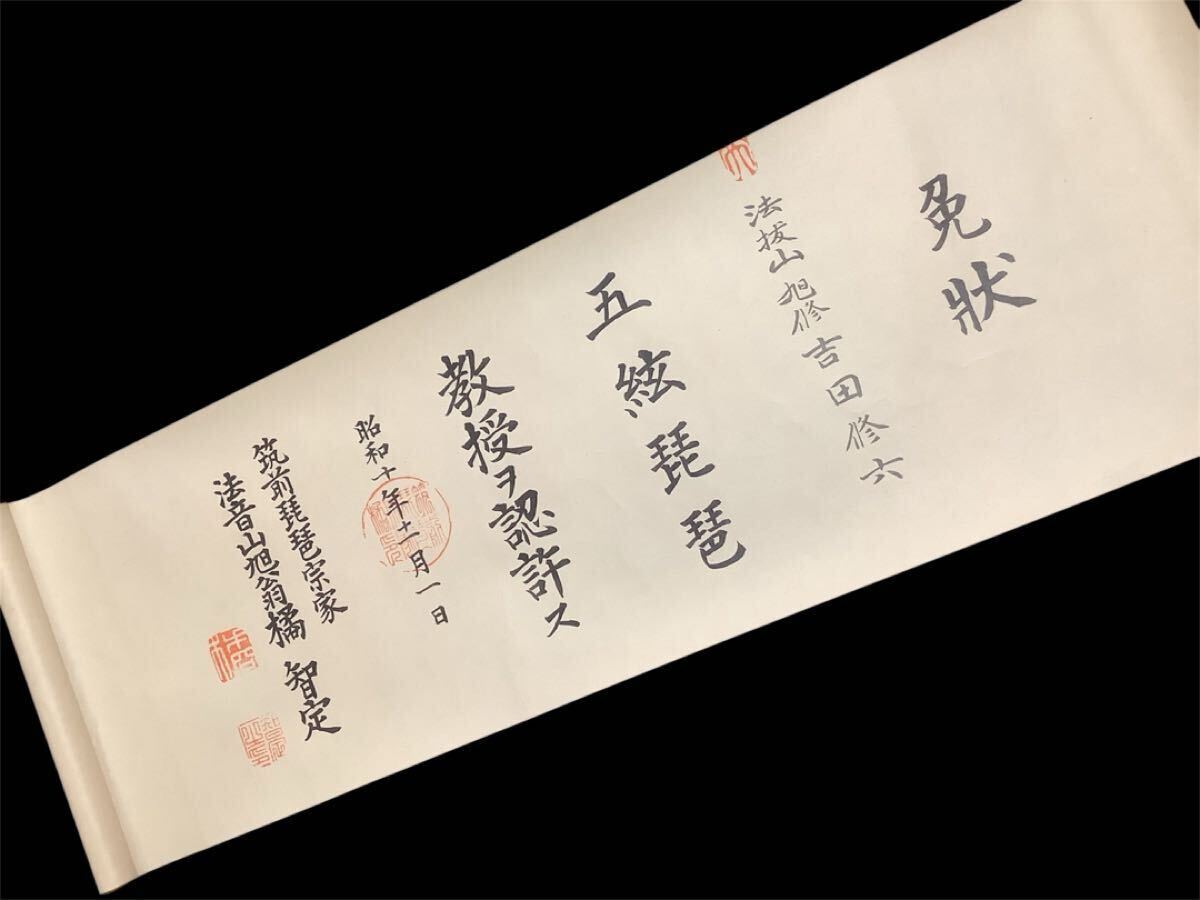 免狀
法拔山旭修吉田修六
五絃琵琶
教授ヲ認許ス
昭和十年十一月一日
筑前琵琶宗家
法音山旭翁橘智定